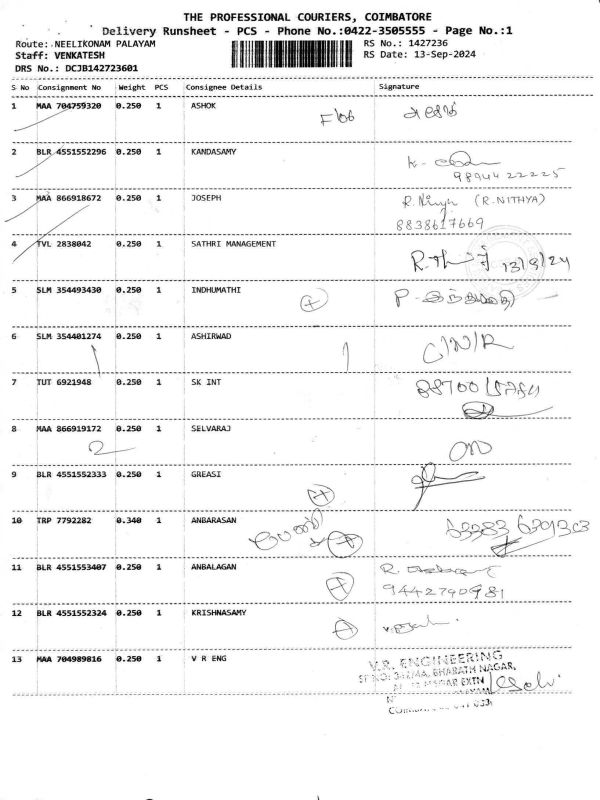 THE PROFESSIONAL COURIERS, COIMBATORE
Delivery Runsheet - PCS - Phone No.:0422-3505555 - Page No.:1
Route: NEELIKONAM PALAYAM RS No.: 1427236
Staff: VENKATESH RS Date: 13-Sep-2024
DRS No.: DCJB142723601
S No Consignment No Weight PCS Consignee Details Signature
1 MAA 704759320 0.250 1 ASHOK
2 BLR 4551552296 0.250 1 KANDASAMY
9894422225
3 MAA 866918672 0.250 1 JOSEPH (R.NITHYA)
8838617669
4 TVL 2838042 0.250 1 SATHRI MANAGEMENT
13/9/24
5 SLM 354493430 0.250 1 INDHUMATHI
6 SLM 354401274 0.250 1 ASHIRWAD
C/N/R
7 TUT 6921948 0.250 1 SK INT
8 MAA 866919172 0.250 1 SELVARAJ
2
9 BLR 4551552333 0.250 1 GREASI
10 TRP 7792282 0.340 1 ANBARASAN
11 BLR 4551553407 0.250 1 ANBALAGAN
9442790981
12 BLR 4551552324 0.250 1 KRISHNASAMY
13 MAA 704989816 0.250 1 V R ENG
V.R. ENGINEERING
BHARATH NAGAR,
EXTN